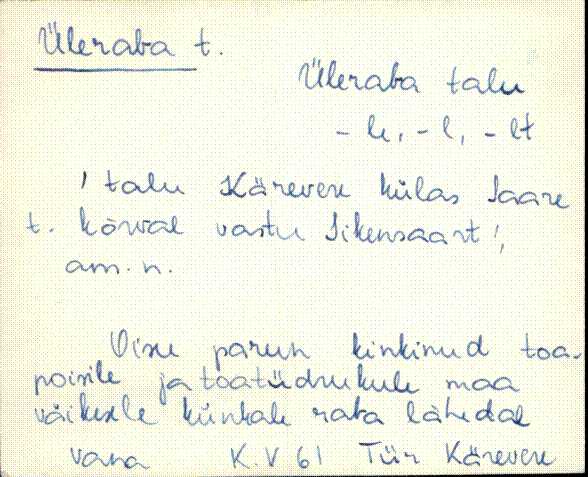 Üleraba t.
Üleraba talu
-le, -l, -lt
' talu Kärevere külas Saare
t. kõrval vastu Sikensaart',
am. n.
Oisu parun kinkinud toa-
poisile ja toatüdrukule maa
väiksele künkale raba lähedal
vana K.V 61 Tür Kärevere